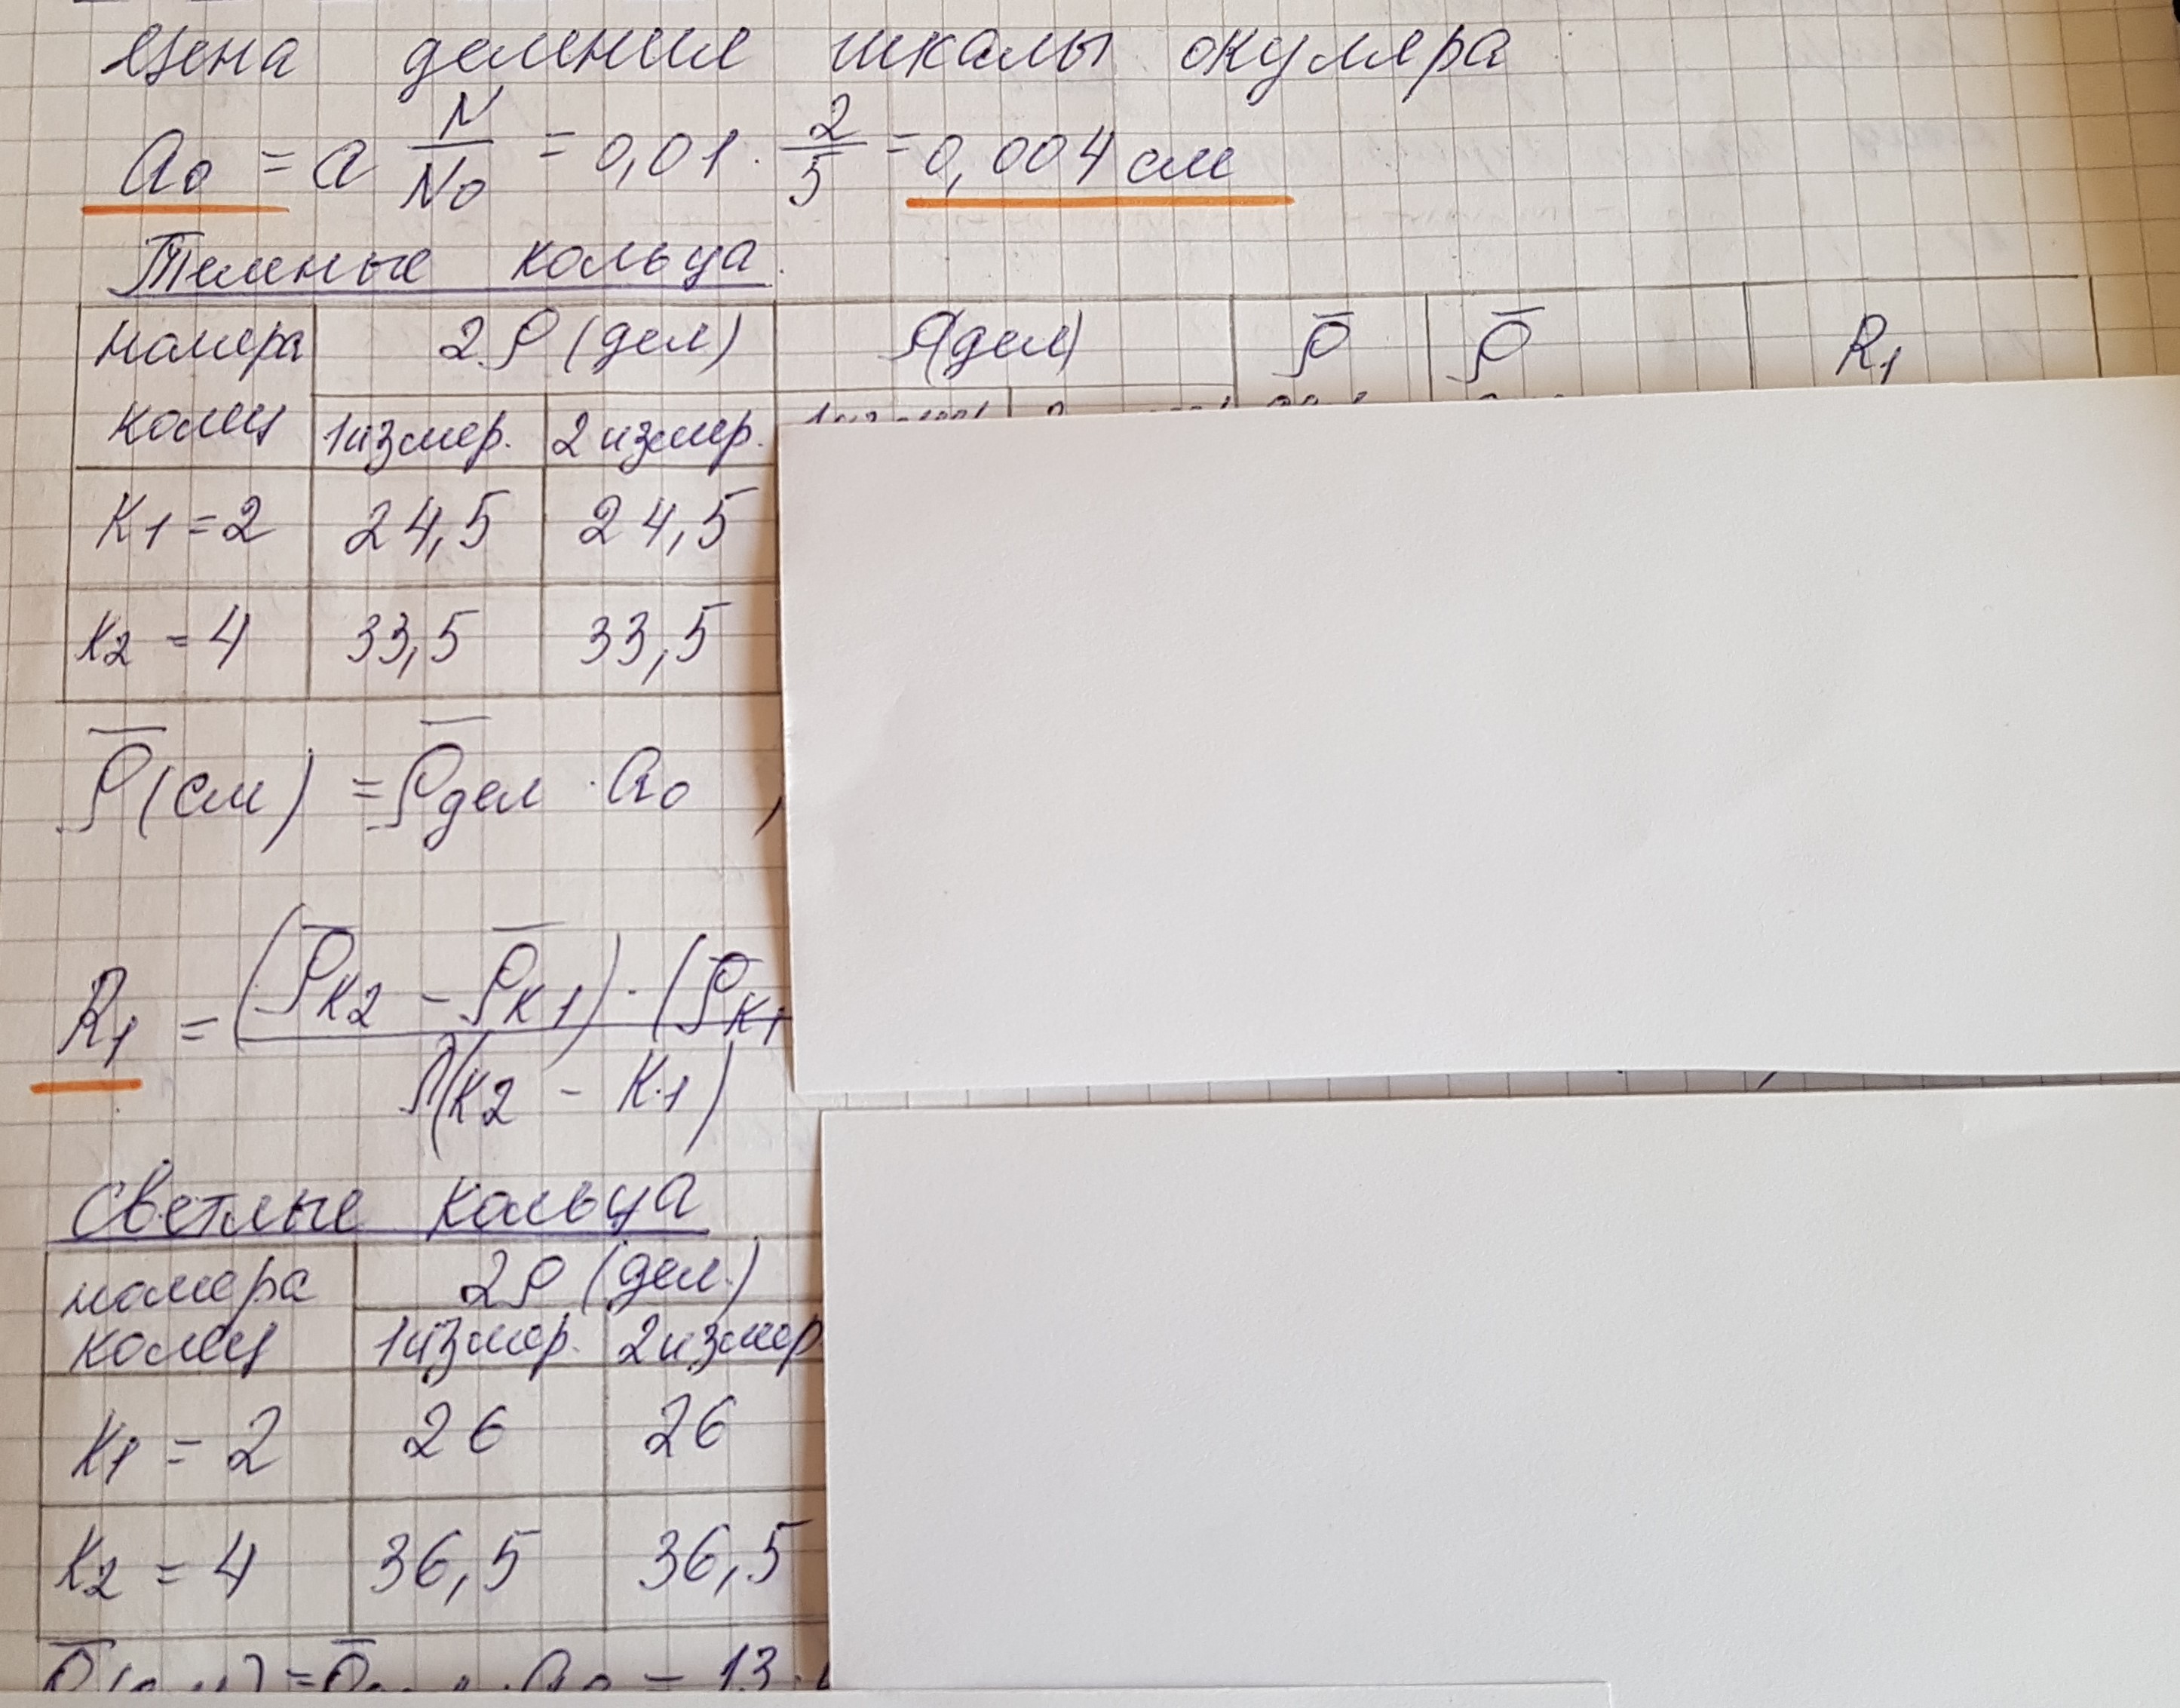 Цена деления шкалы окуляра
a₀ = a N/N₀ = 0,01 · 2/5 = 0,004 см
Темные кольца
номера колец 2ρ (дел) ρ(дел) ρ̄ ρ̄ R₁
1 измер. 2 измер.
K₁ = 2 24,5 24,5
K₂ = 4 33,5 33,5
ρ̄ (см) = ρ̄дел · a₀ ,
R₁ = (ρ̄K2 - ρ̄K1) · (ρ̄K1
λ(K₂ - K₁)
Светлые кольца
номера колец 2ρ (дел.)
1 измер. 2 измер
K₁ = 2 26 26
K₂ = 4 36,5 36,5
= 13 ·